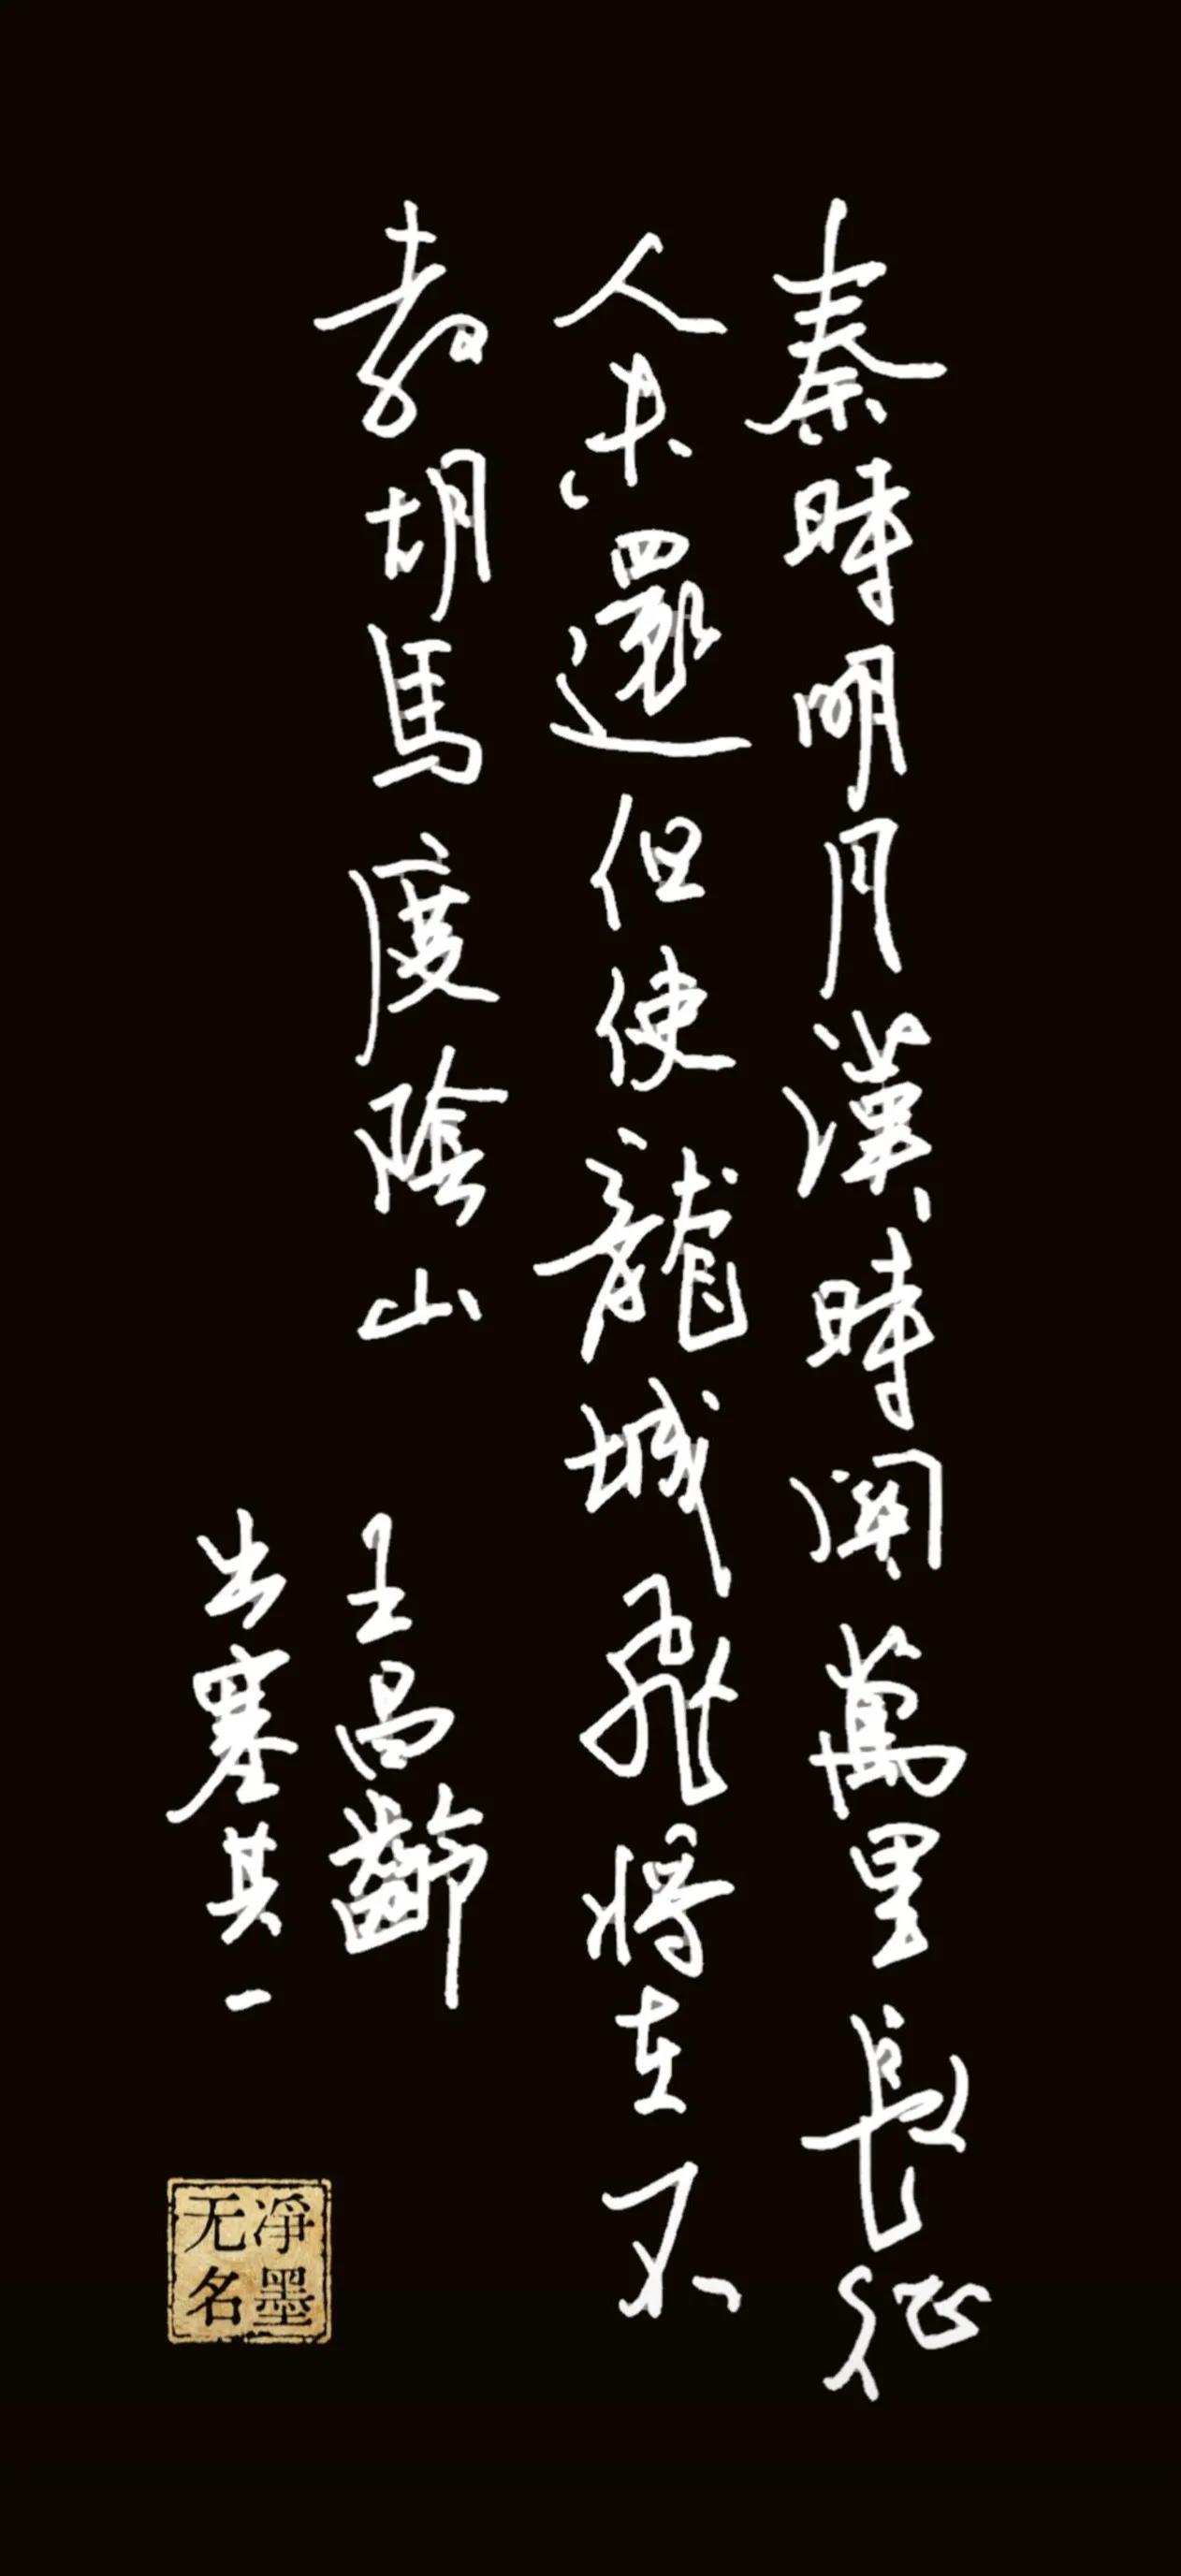 秦時明月漢時関萬里長征
人未還但使龍城飛將在不
教胡馬度陰山
王昌齡
出塞其一
净墨
无名